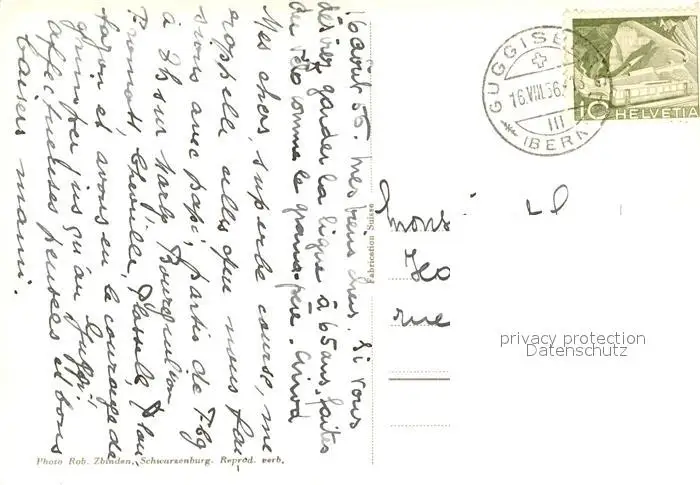 16 août 56. Mes biens chers. Si vous
désirez garder la ligne à 65 ans, faites
du vélo comme le grand-père. Arnold
Mes chers, superbe course, me
rappelle celles que nous fai-
sions avec papi, partis de Fbg
à 8h sur Marly Bourguillon
Plasselb Plan-
fayon et avons eu le courage de
grimper jusqu'au Guggi,
affectueuses pensées et bons
baisers mami.
Photo Rob. Zbinden, Schwarzenburg. Reprod. verb.
Fabrication Suisse
GUGGISB
16.VIII.56.
III
(BERN)
10 HELVETIA
Mons
rue
privacy protection
Datenschutz